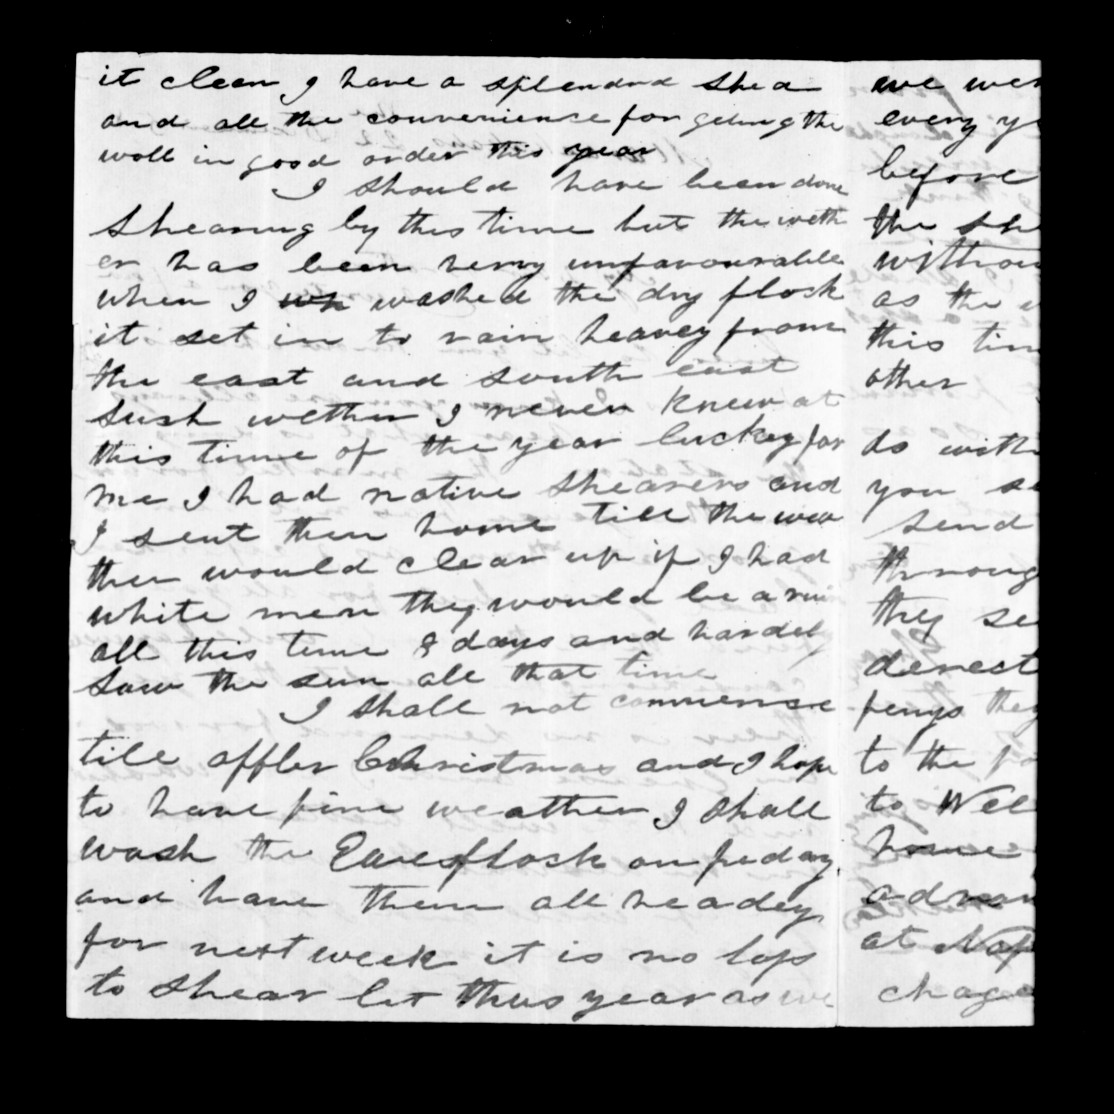 it clean I have a splendnd shed
and all the convenience for geting the
woll in good order this year
I should have been done
Shearing by this time but the weth
er has been verry unfavourable
when I wh washed the dry flock
it set in to rain heavey from
the east and south east
Sush wether I never knew at
this time of the year luckey for
me I had native Shearers and
I sent then home till the wea
ther would clear up if I had
white men they would be a ruin
all this time 8 days and hardely
Saw the sun all that time
I Shall not commense
till affler Christmas and I hope
to have fine weather I Shall
wash the Ewes flock on friday
and have them all readey
for next week it is no loss
to Shear let this year as we
we wer
every y
before
the she
withou
as the w
this tim
other
do with
you se
Send
throug
they se
derest
fenys they
to the po
to Wel
house
adman
at Nap
chage